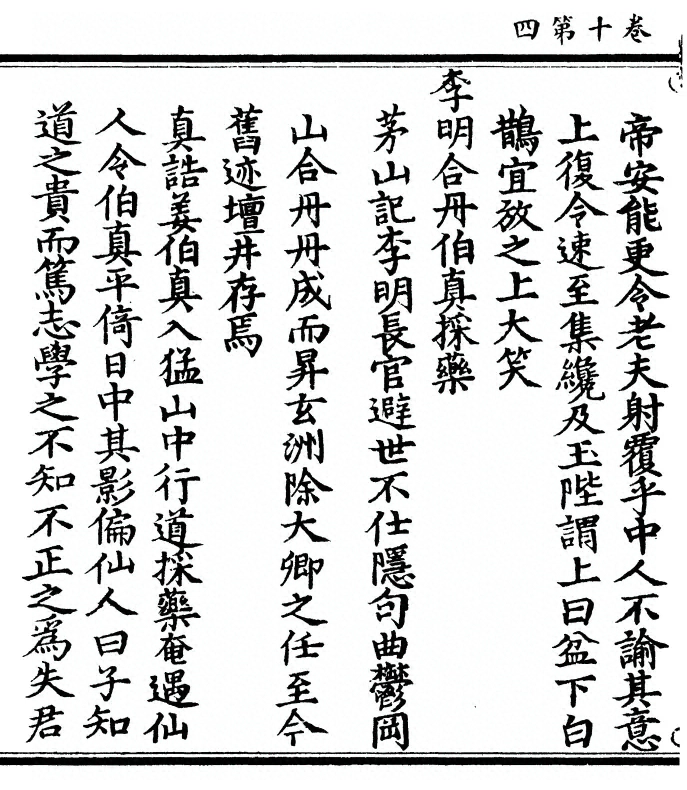 卷十第四
帝安能更令老夫射覆乎中人不諭其意
上復令速至集纔及玉陛謂上曰盆下白
鵲宜放之上大笑
李明合丹伯真採藥
茅山記李明長官避世不仕隱句曲鬱岡
山合丹丹成而昇玄洲除大卿之任至今
舊迹壇井存焉
真誥姜伯真入猛山中行道採藥奄遇仙
人令伯真平倚日中其影偏仙人曰子知
道之貴而篤志學之不知不正之爲失君